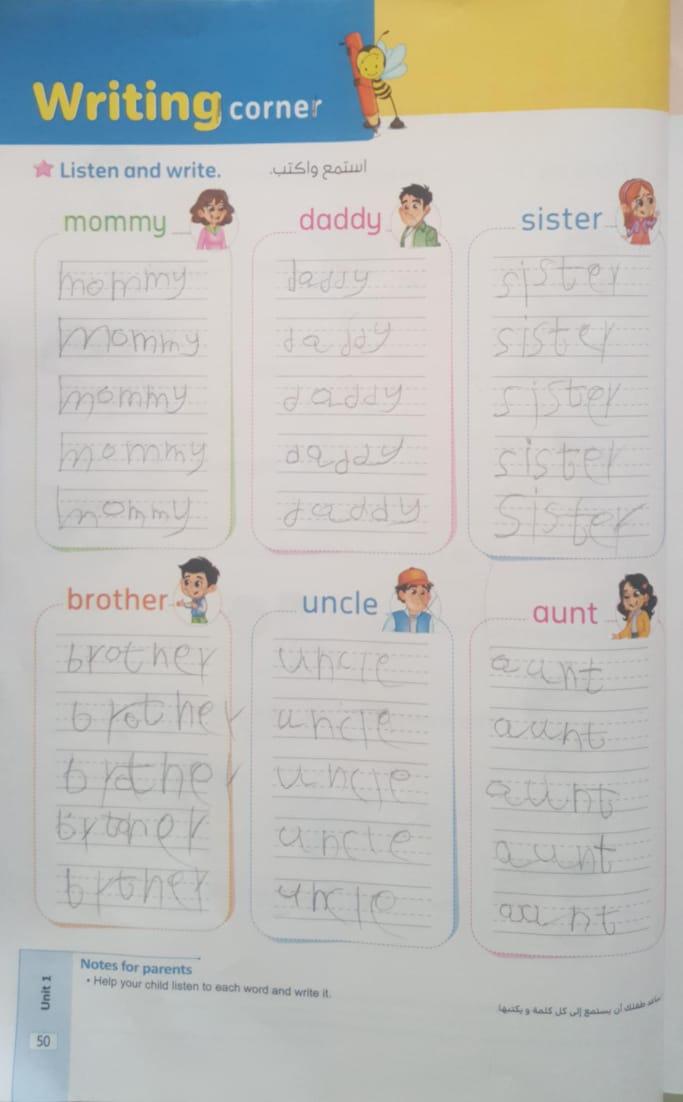 Writing corner
Listen and write. استمع واكتب.
mommy
mommy
mommy
mommy
mommy
mommy
daddy
daddy
daddy
daddy
daddy
daddy
sister
sister
sister
sister
sister
sister
brother
brother
brother
brther
brtoher
brther
uncle
uncle
uncle
uncle
uncle
uncle
aunt
aunt
aunt
aunt
aunt
aunt
Notes for parents
• Help your child listen to each word and write it.
ساعد طفلك أن يستمع إلى كل كلمة و يكتبها.
Unit 1
50